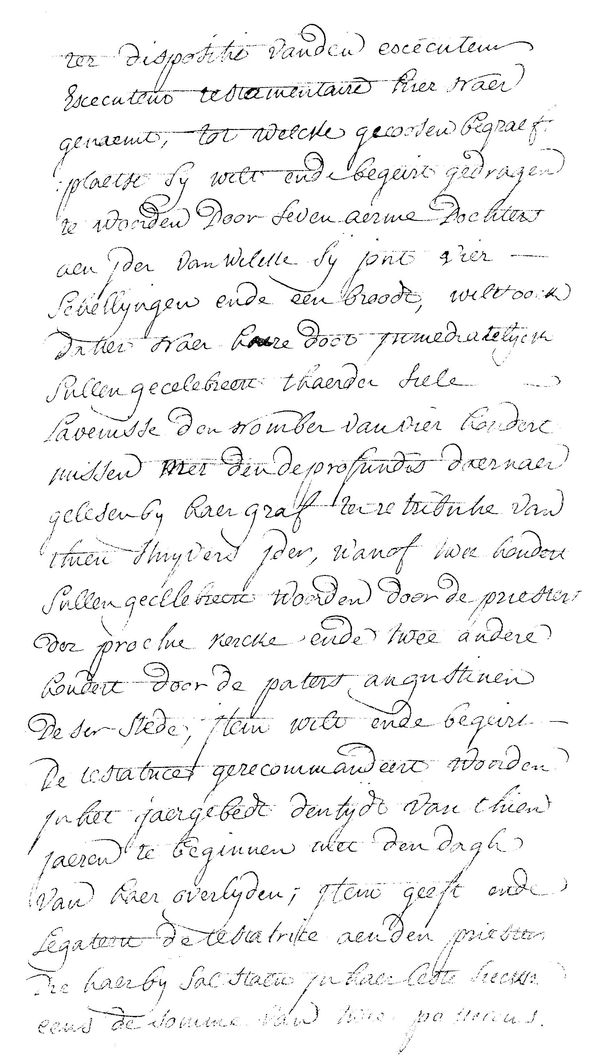 ter dispositie vanden executeur
Executeur testamentaire hier naer
genaemt, tot welcke gecosen begraef:
:plaetse sy wilt ende begeirt gedragen
te worden door seven aerme dochters
aen jder van welcke sy jont vier —
schellyngen ende een broodt, wilt oock
datter naer haere doot jmmediatelyck
sullen gecelebreert t'haerder siele —
lavenisse den nomber van vier hondert
missen met den deprofundis daernaer
gelesen by haer graf ter retributie van
thien stuyvers jder, vanof twee hondert
sullen gecelebreert worden door de priesters
der prochie kercke ende twee andere
hondert door de paters augustinen
deser stede, jtem wilt ende begeirt —
de testatrice gerecommandeert worden
jn het jaergebedt den tydt van thien
jaeren te beginnen met den dagh
van haer overlyden; jtem geeft ende
legateert de testatrice aen den priester
die haer by sal staen jn haer leste sieckte
eens de somme van twee pattacons.